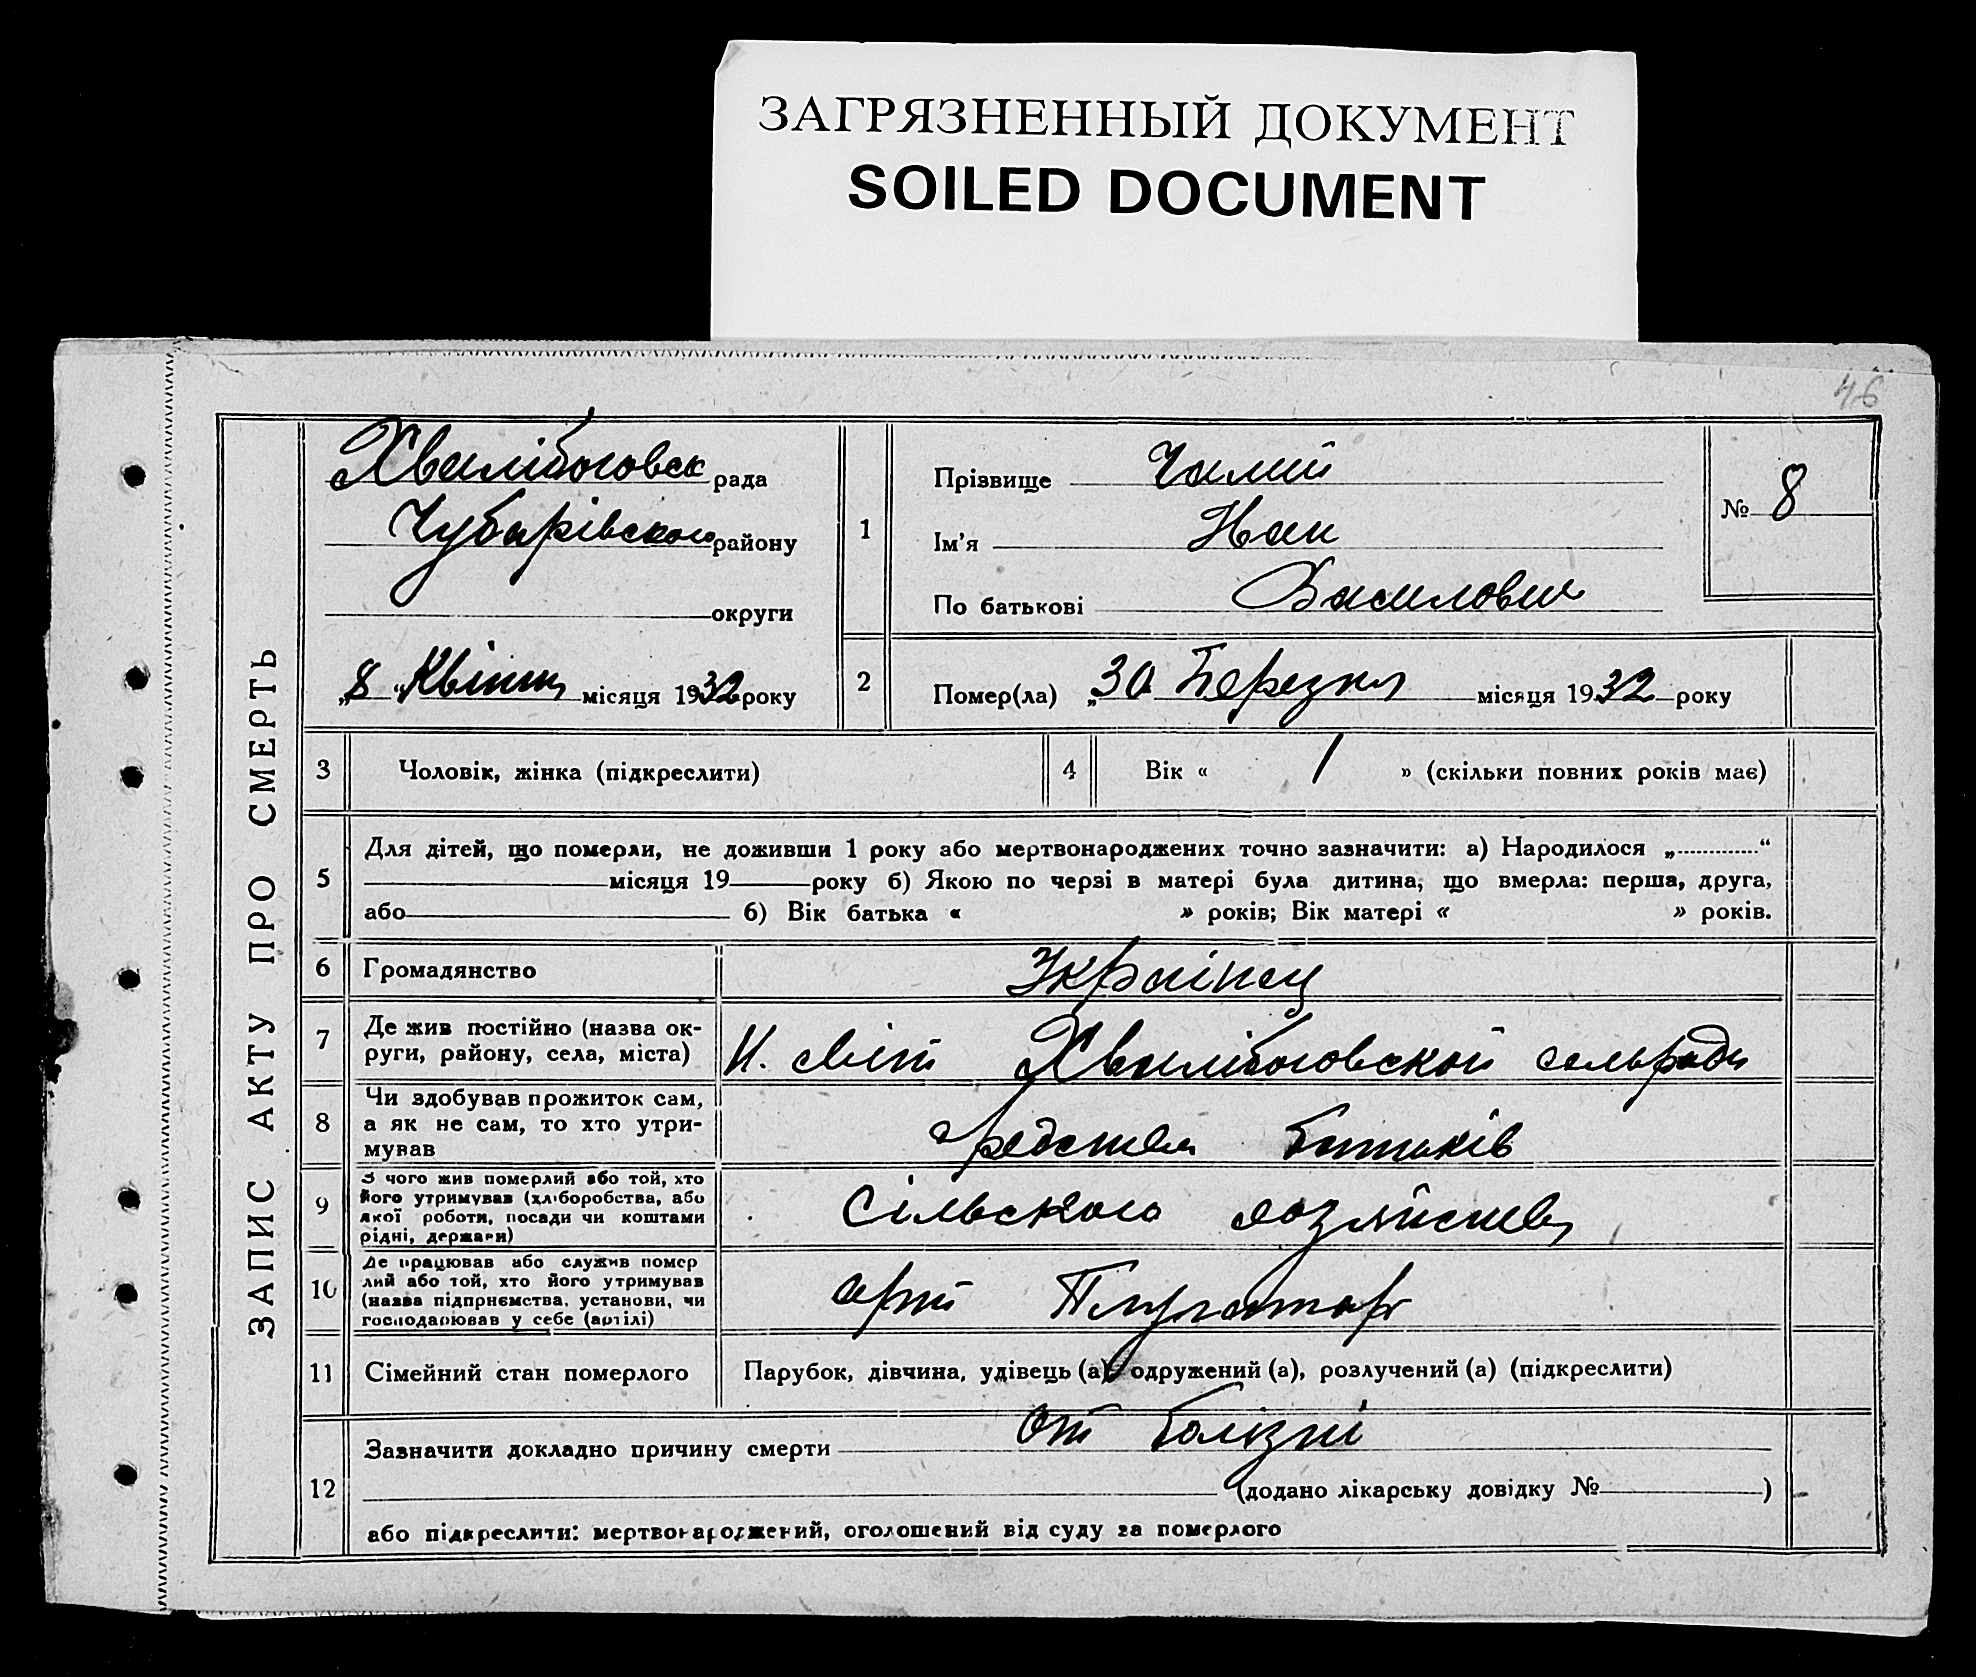 ЗАГРЯЗНЕННЫЙ ДОКУМЕНТ
SOILED DOCUMENT
46
ЗАПИС АКТУ ПРО СМЕРТЬ
Хвалібоговск рада
Чубарівского району
округи
„8“ Квітня місяця 1932 року
1
Прізвище Чалий
Ім'я Иван
По батькові Василович
№ 8
2
Помер(ла) „30 Березня місяця 1932 року
3 Чоловік, жінка (підкреслити)
4 Вік « 1 » (скільки повних років має)
5 Для дітей, що померли, не доживши 1 року або мертвонароджених точно зазначити: а) Народилося „ “
місяця 19 року б) Якою по черзі в матері була дитина, що вмерла: перша, друга,
або б) Вік батька « » років; Вік матері « » років.
6 Громадянство Українец
7 Де жив постійно (назва ок-
руги, району, села, міста) Н. світ Хвалібоговской сельради
8 Чи здобував прожиток сам,
а як не сам, то хто утри-
мував средства батьків
9 З чого жив померлий або той, хто
його утримував (хліборобства, або
якої роботи, посади чи коштами
рідні, держави) Сільского хозяйства
10 Де працював або служив помер
лий або той, хто його утримував
(назва підприємства, установи, чи
господарював у себе (артілі) арт Плугатар
11 Сімейний стан померлого Парубок, дівчина, удівець (а), одружений (а), розлучений (а) (підкреслити)
12 Зазначити докладно причину смерти От болізні
(додано лікарську довідку № )
або підкреслити: мертвонароджений, оголошений від суду за померлого